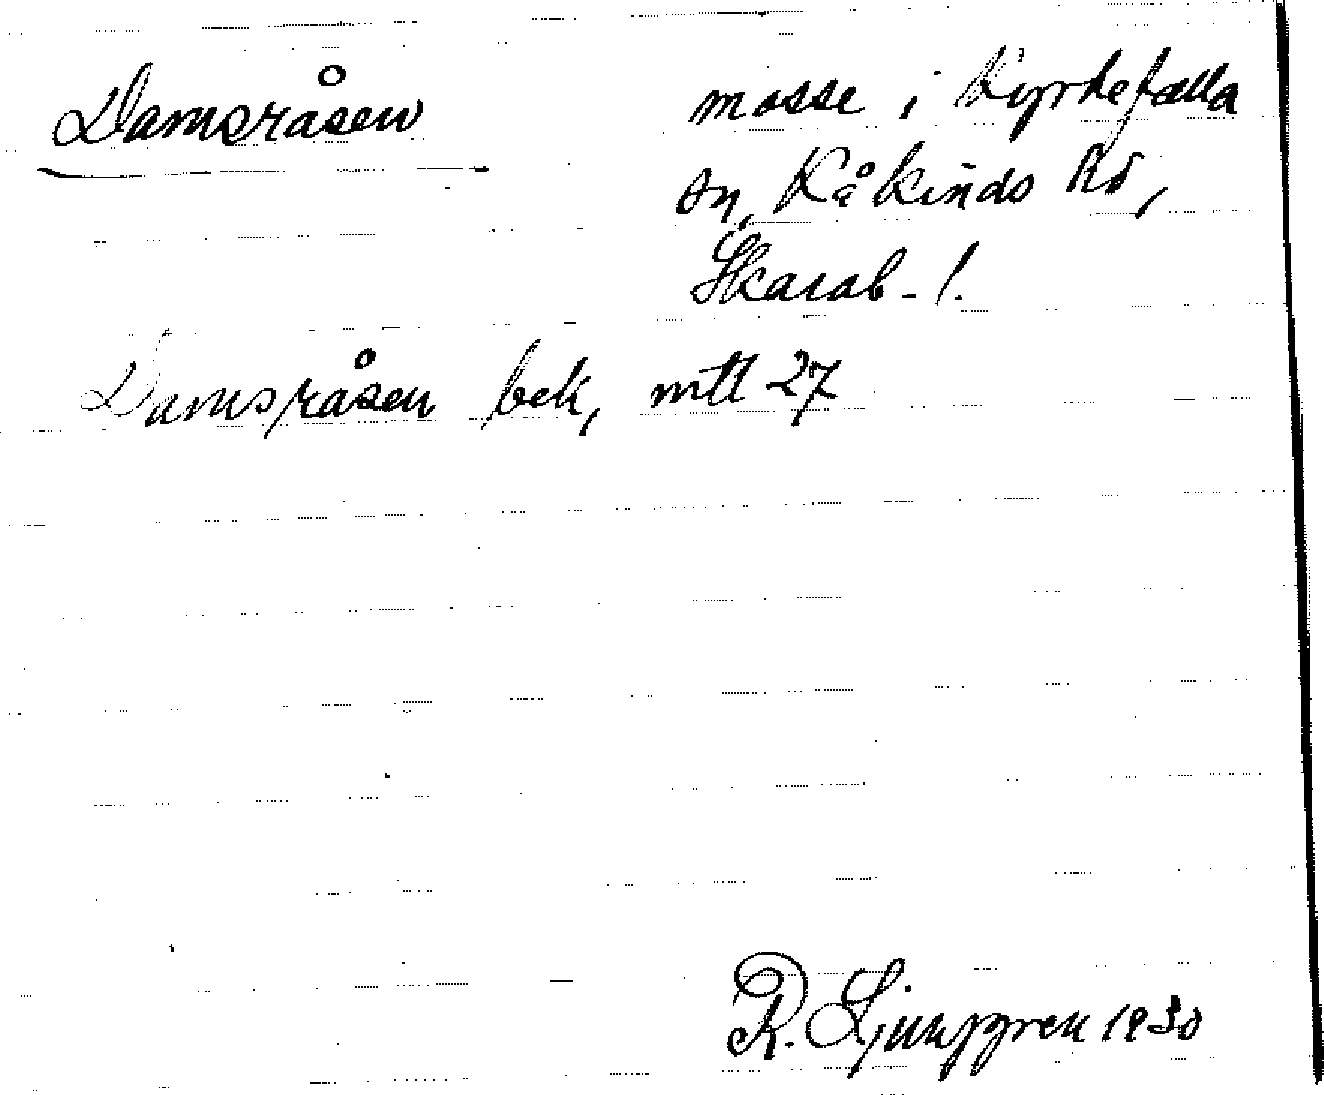 Damsråsen
mosse i Kyrkefalla
sn, Kåkinds hd,
Skarab. l.
Damsråsen bek, mtl 27
R. Ljunggren 1930